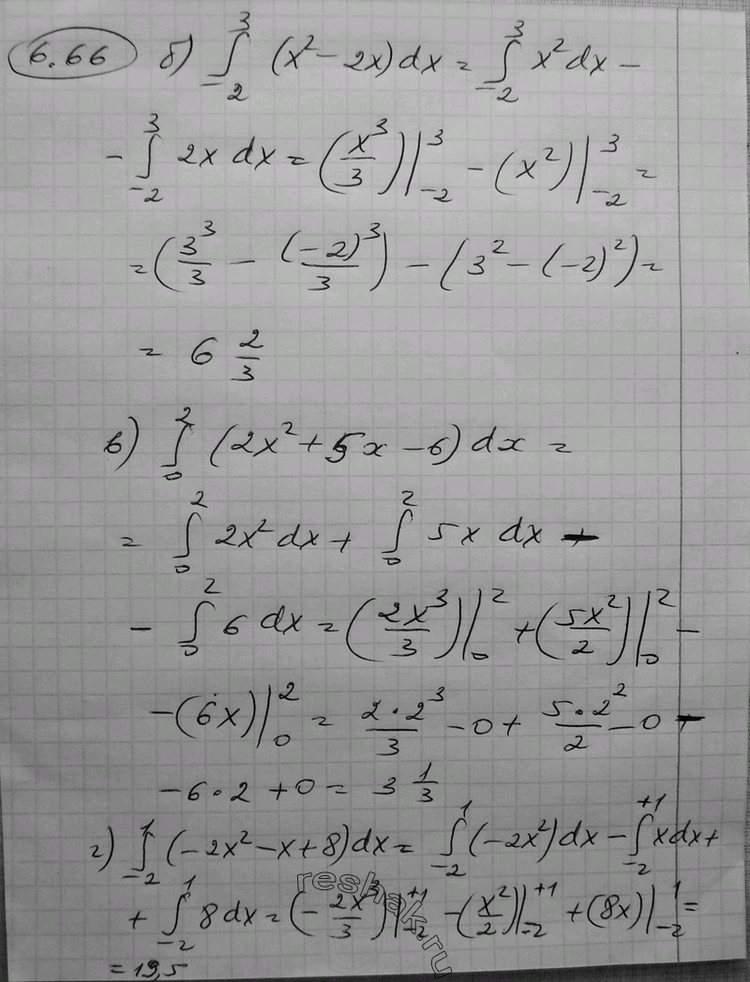 6.66 б) ∫_{-2}^{3} (x² − 2x) dx = ∫_{-2}^{3} x² dx −
− ∫_{-2}^{3} 2x dx = (x³/3)|_{-2}^{3} − (x²)|_{-2}^{3} =
= (3³/3 − (−2)³/3) − (3² − (−2)²) =
= 6 2/3
в) ∫_{0}^{2} (2x² + 5x − 6) dx =
= ∫_{0}^{2} 2x² dx + ∫_{0}^{2} 5x dx −
− ∫_{0}^{2} 6 dx = (2x³/3)|_{0}^{2} + (5x²/2)|_{0}^{2} −
− (6x)|_{0}^{2} = 2·2³/3 − 0 + 5·2²/2 − 0 −
− 6·2 + 0 = 3 1/3
г) ∫_{-2}^{1} (−2x² − x + 8) dx = ∫_{-2}^{1} (−2x²) dx − ∫_{-2}^{+1} x dx +
+ ∫_{-2}^{1} 8 dx = (−2x³/3)|_{-2}^{+1} − (x²/2)|_{-2}^{+1} + (8x)|_{-2}^{1} =
= 19,5
reshak.ru